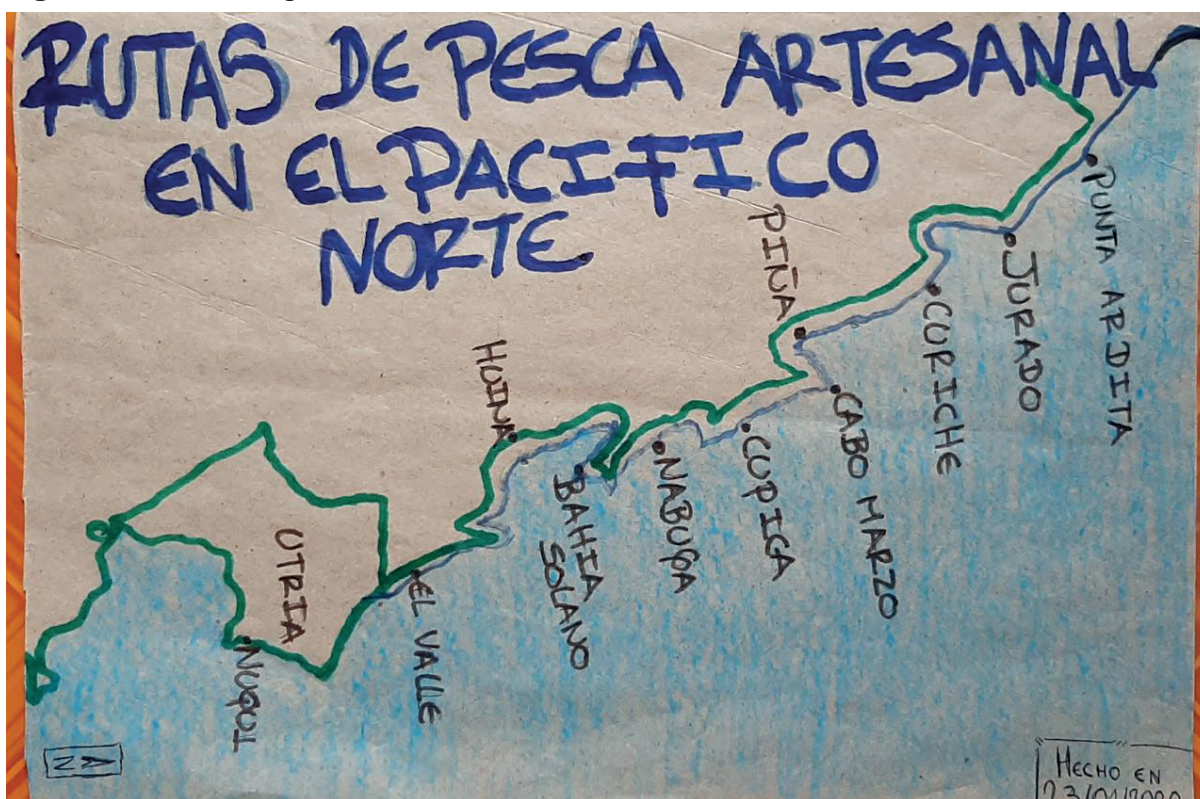 RUTAS DE PESCA ARTESANAL
EN EL PACIFICO
NORTE
PUNTA ARDITA
JURADO
CURICHE
PIÑA
CABO MARZO
CUPICA
NABUGA
HUINA
BAHIA
SOLANO
EL VALLE
UTRIA
NUQUI
N
HECHO EN